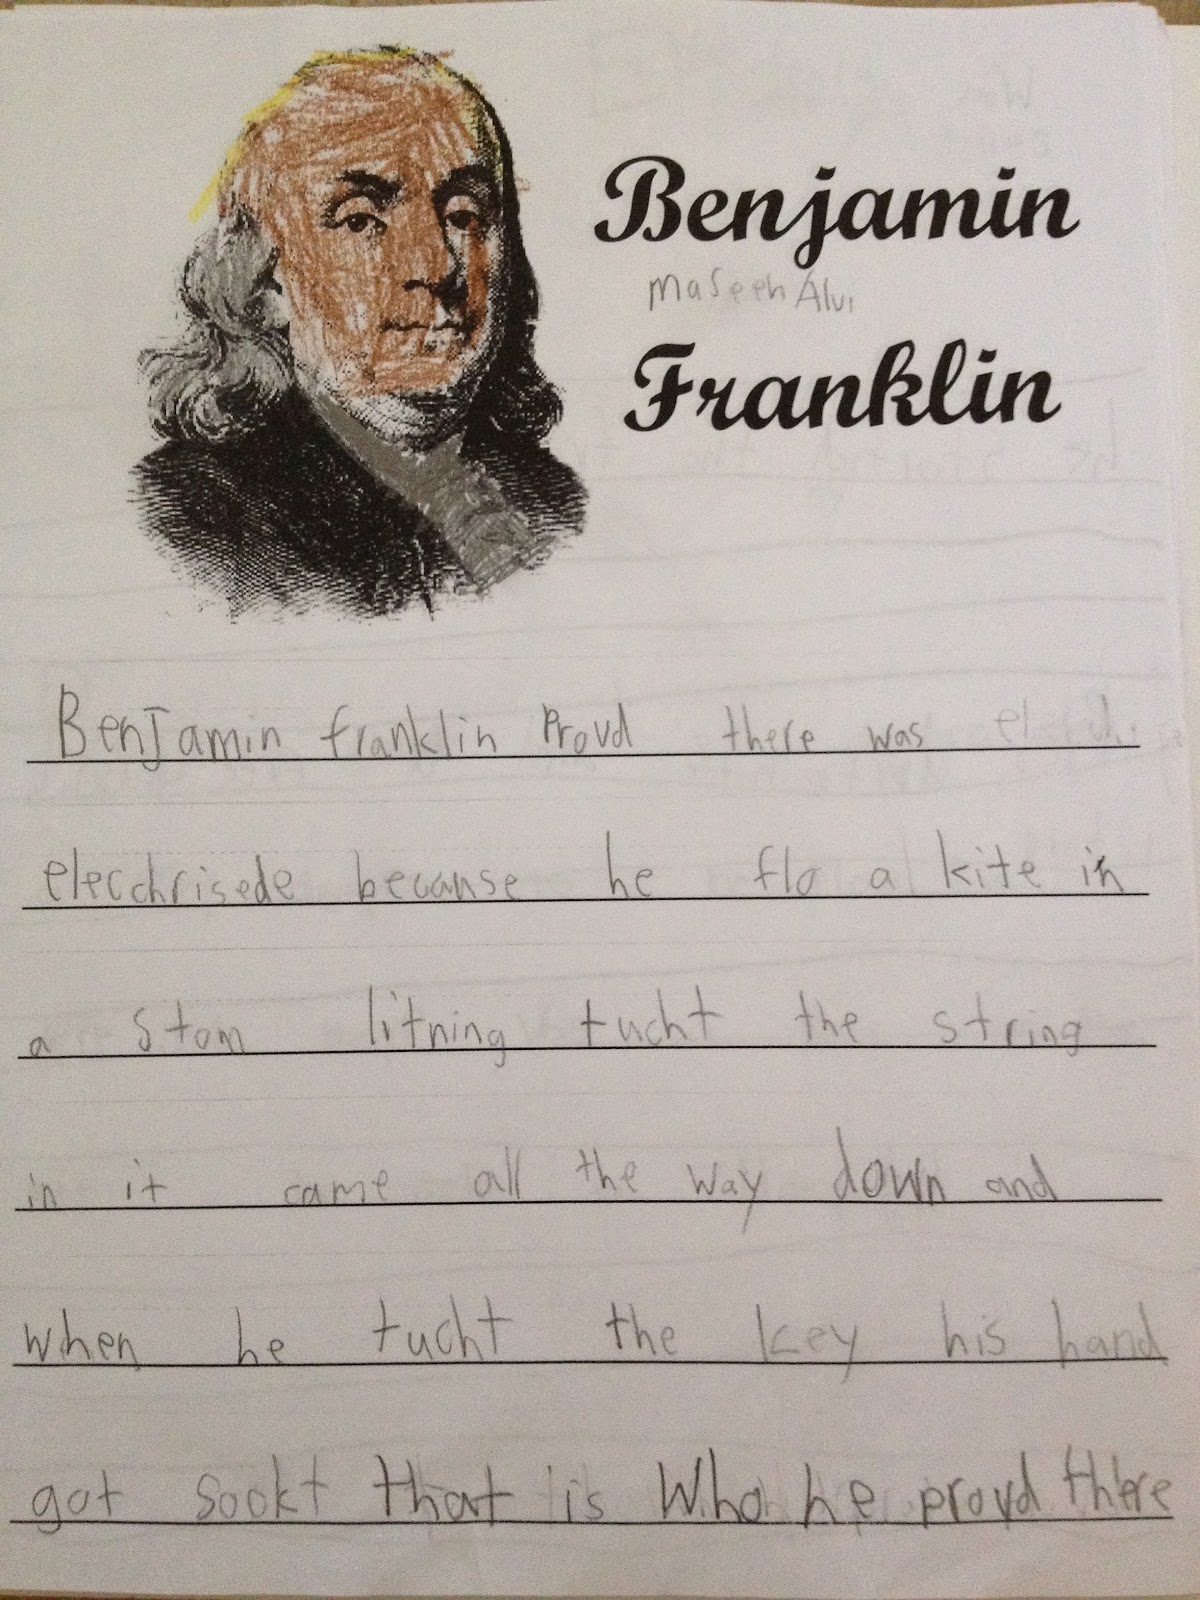 Benjamin
Maseeh Alvi
Franklin
Benjamin franklin Provd there was
elecchrisede because he flo a kite in
a stom litning tucht the string
in it came all the way down and
when he tucht the key his hand
got sockt that is Who he provd there